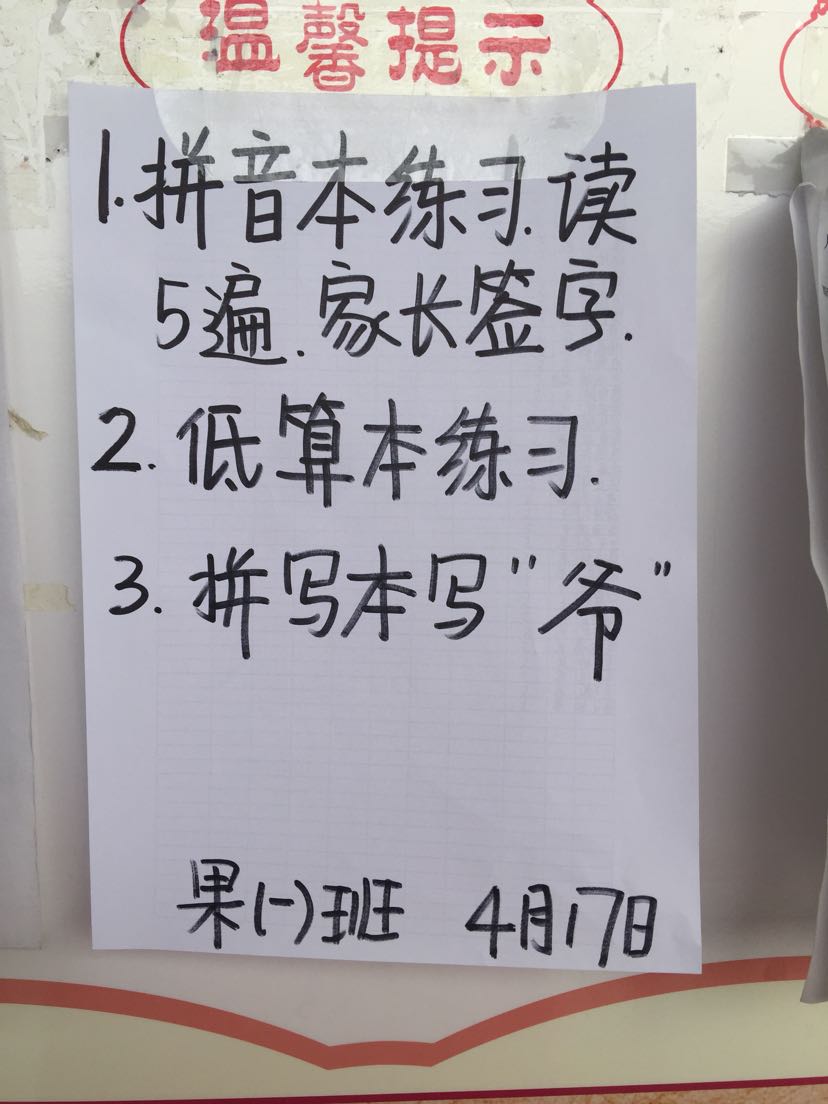 温馨提示
1.拼音本练习.读
5遍.家长签字.
2.低算本练习.
3.拼写本写"爷"
果(一)班 4月17日